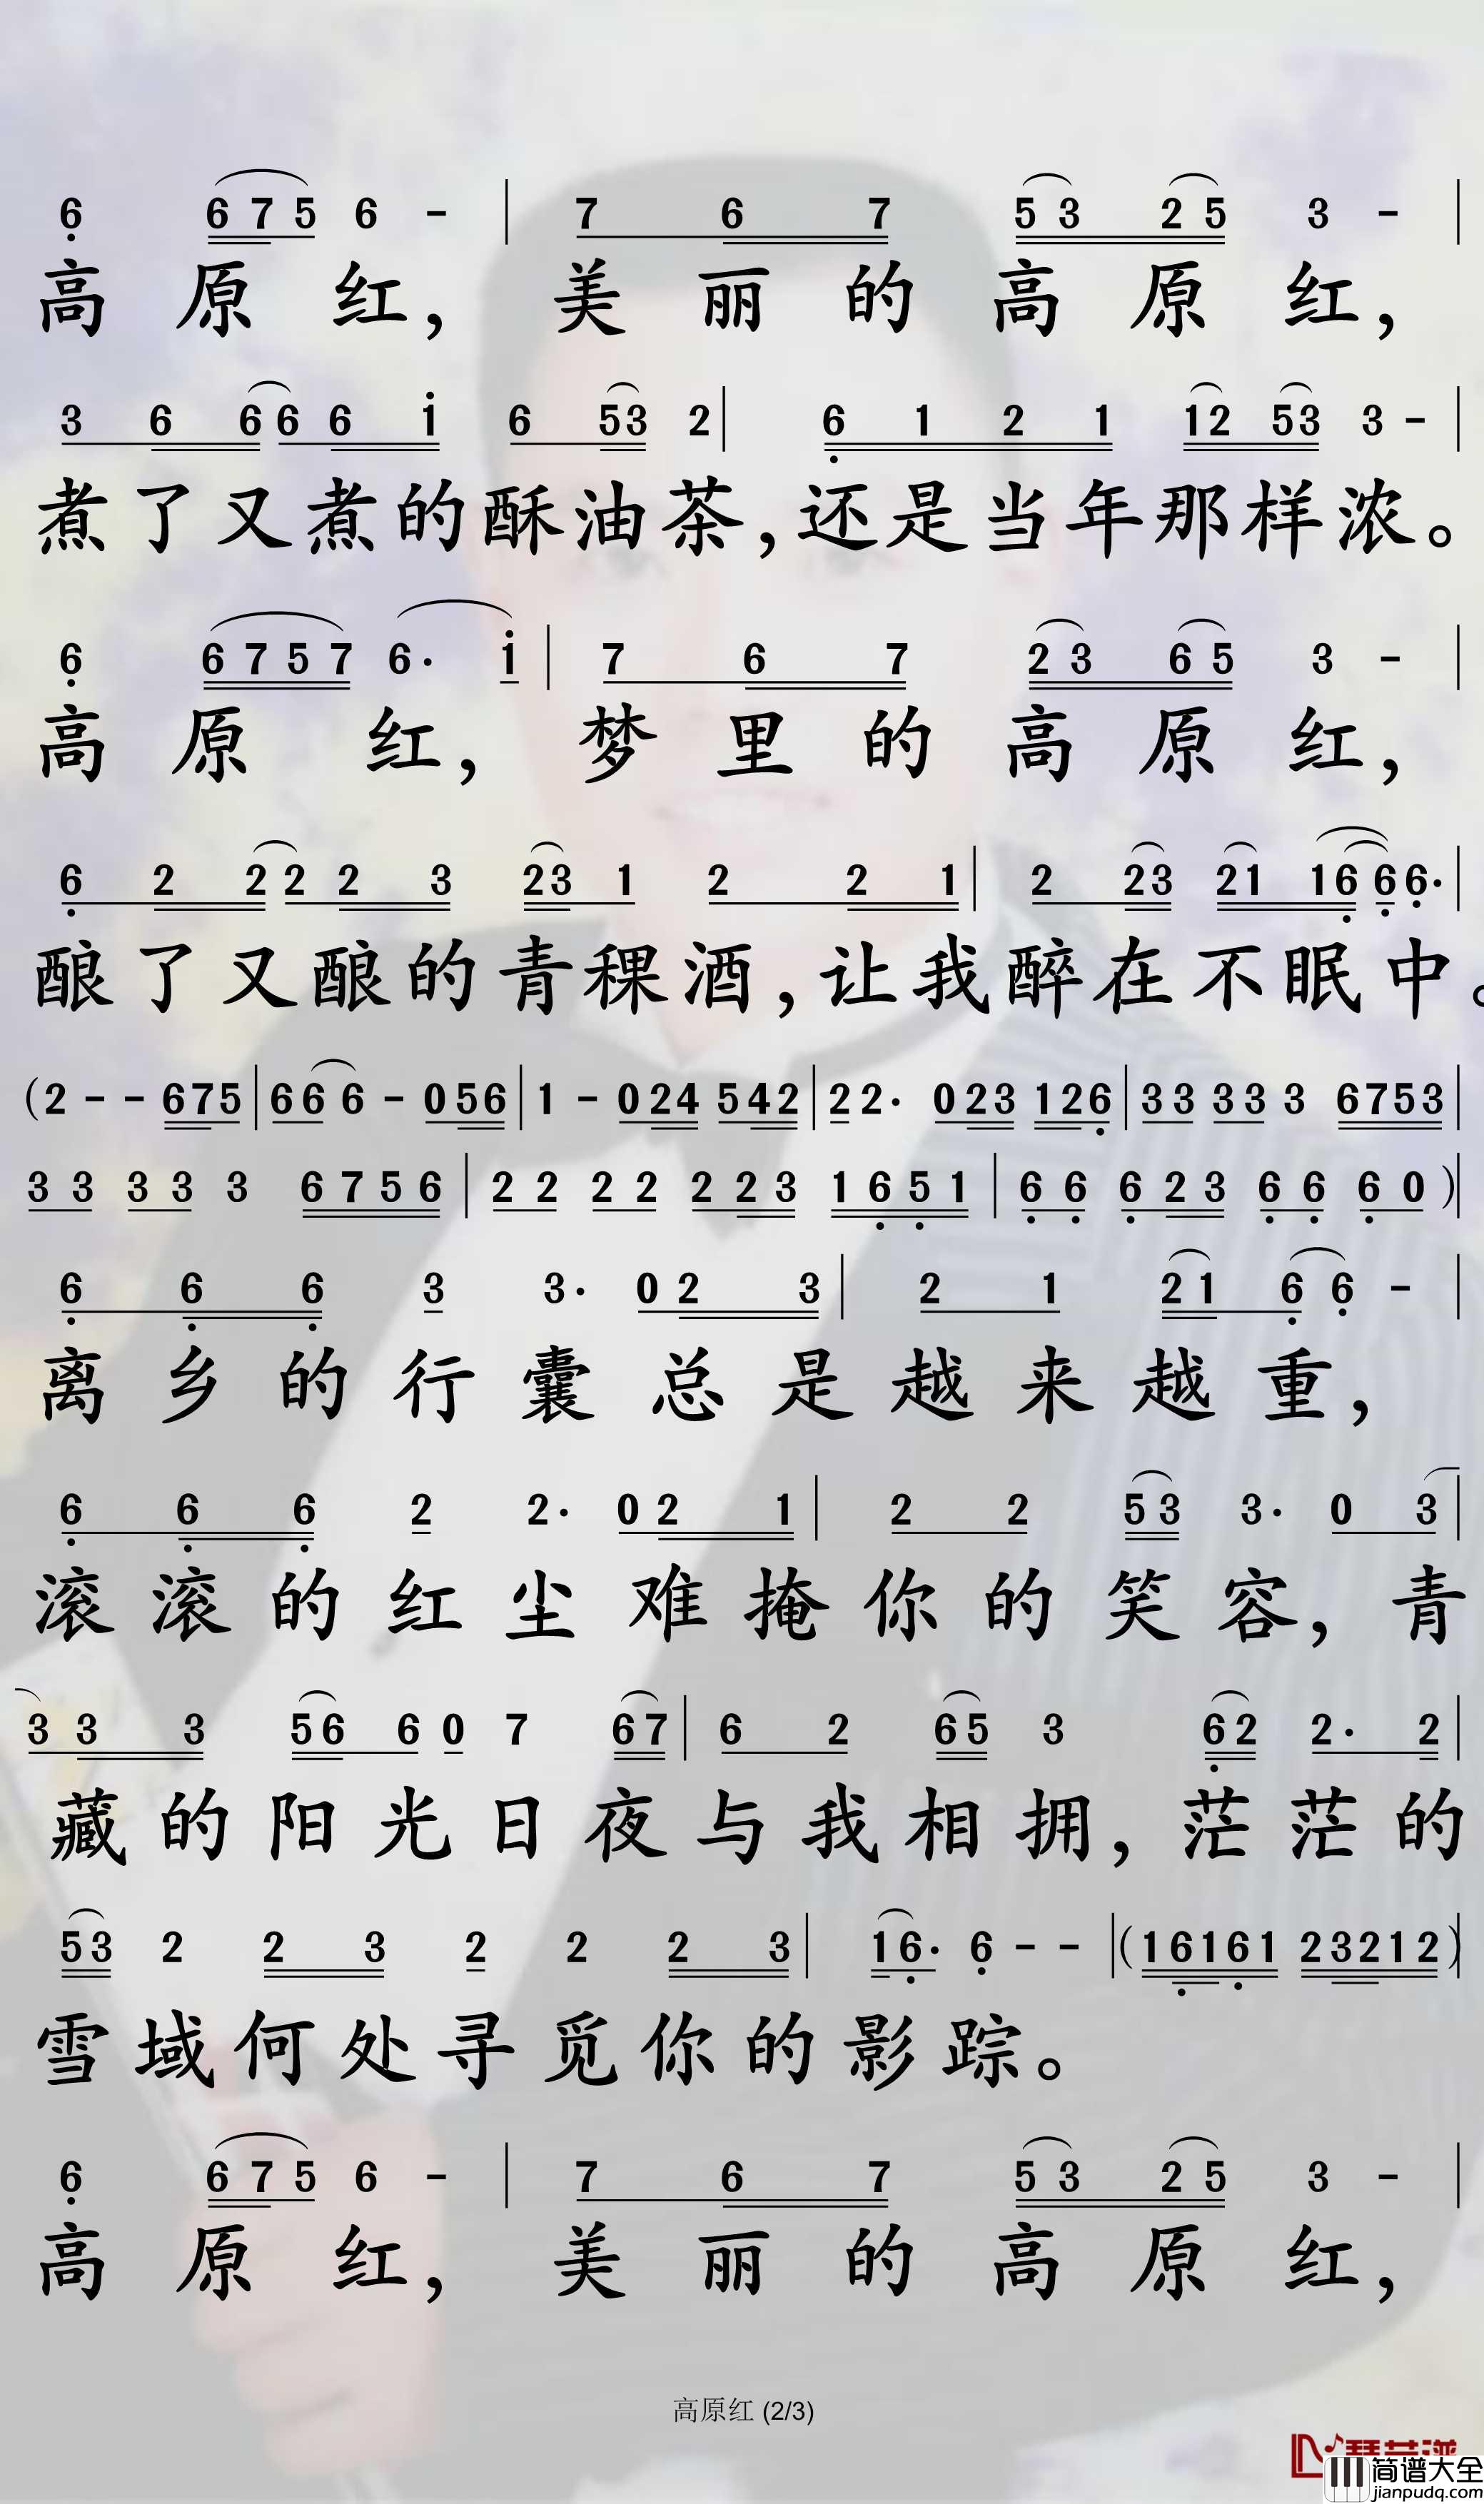 6 6 7 5 6 - | 7 6 7 5 3 2 5 3 - |
高原红，美丽的高原红，
3 6 6 6 6 i 6 5 3 2 | 6 1 2 1 1 2 5 3 3 - |
煮了又煮的酥油茶，还是当年那样浓。
6 6 7 5 7 6· i | 7 6 7 2 3 6 5 3 - |
高原红，梦里的高原红，
6 2 2 2 2 3 2 3 1 2 2 1 | 2 2 3 2 1 1 6 6 6· |
酿了又酿的青稞酒，让我醉在不眠中。
(2 - - 6 7 5 | 6 6 6 - 0 5 6 | 1 - 0 2 4 5 4 2 | 2 2· 0 2 3 1 2 6 | 3 3 3 3 3 6 7 5 3 |
3 3 3 3 3 6 7 5 6 | 2 2 2 2 2 2 3 1 6 5 1 | 6 6 6 2 3 6 6 6 0 ) |
6 6 6 3 3· 0 2 3 | 2 1 2 1 6 6 - |
离乡的行囊总是越来越重，
6 6 6 2 2· 0 2 1 | 2 2 5 3 3· 0 3 |
滚滚的红尘难掩你的笑容，青
3 3 3 5 6 6 0 7 6 7 | 6 2 6 5 3 6 2 2· 2 |
藏的阳光日夜与我相拥，茫茫的
5 3 2 2 3 2 2 2 3 | 1 6· 6 - - | (1 6 1 6 1 2 3 2 1 2) |
雪域何处寻觅你的影踪。
6 6 7 5 6 - | 7 6 7 5 3 2 5 3 - |
高原红，美丽的高原红，
高原红 (2/3)
简谱大全
jianpudq.com